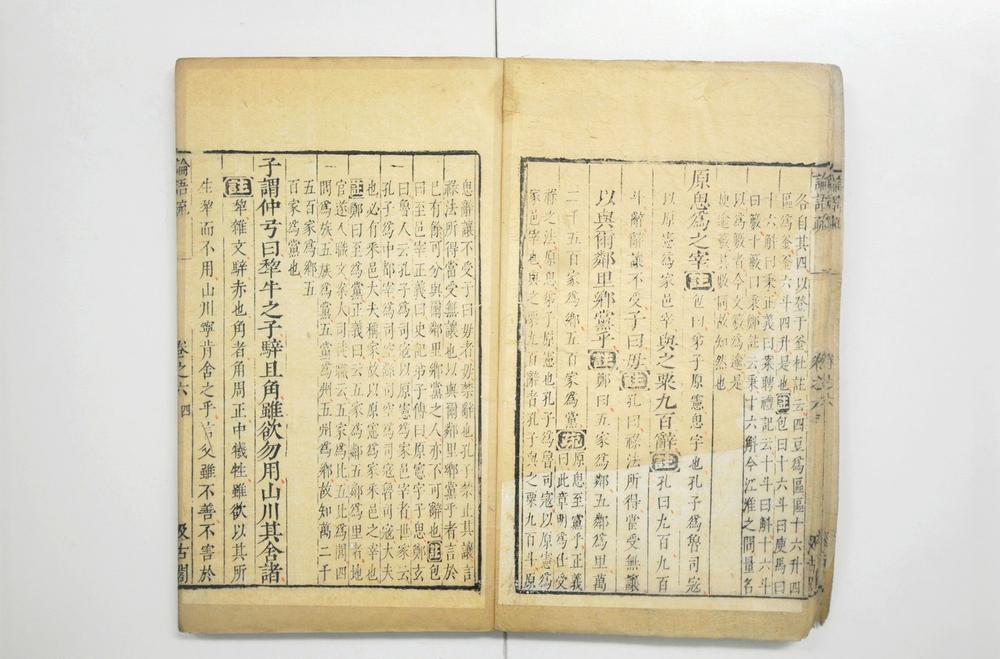 論語疏
卷之六
各自其四以登于釜杜註云四豆爲區區十六升四
區爲釜釜六斗四升是也註包曰十六斗曰庾馬曰
十六斛曰秉正義曰案聘禮記云十斗曰斛十六斗
曰籔十籔曰秉鄭註云秉十六斛今江淮之間量名
以爲籔者今文籔爲逾是
庾逾籔其數同故知然也
原思爲之宰註包曰弟子原憲思字也孔子爲魯司寇
以原憲爲家邑宰與之粟九百辭註孔曰九百九百
斗辭辭讓不受子曰毋註孔曰祿法所得當受無讓
以與爾鄰里鄉黨乎註鄭曰五家爲鄰五鄰爲里萬
二千五百家爲鄉五百家爲黨疏原思至黨乎正義曰此章明爲仕受
祿之法原思弟子原憲也孔子爲魯司寇以原憲爲
家邑宰也與之粟九百辭者孔子與之粟九百斗原
思辭讓不受子曰毋者毋禁辭也孔子禁止其讓言
祿法所得當受無讓也以與爾鄰里鄉黨乎者言於
已有餘可分與爾鄰里鄉黨之人亦不可辭也註包
曰至邑宰正義曰史記弟子傳曰原憲字子思鄭玄
曰魯人云孔子爲司寇以原憲爲家邑宰者世家云
孔子爲中都宰爲司空由司空爲司寇魯司寇大夫
也必有采邑大夫稱家故以原憲爲家采邑之宰也
註鄭曰至爲黨正義曰云五家爲鄰五鄰爲里者地
官遂人職文案大司徒職云五家爲比五比爲閭四
閭爲族五族爲黨五黨爲州五州爲鄉故知萬二千
五百家爲鄉五
百家爲黨也
子謂仲弓曰犂牛之子騂且角雖欲勿用山川其舍諸
註犂雜文騂赤也角者角周正中犧牲雖欲以其所
生犂而不用山川寧肯舍之乎言父雖不善不害於
論語疏
卷之六
四
汲古閣